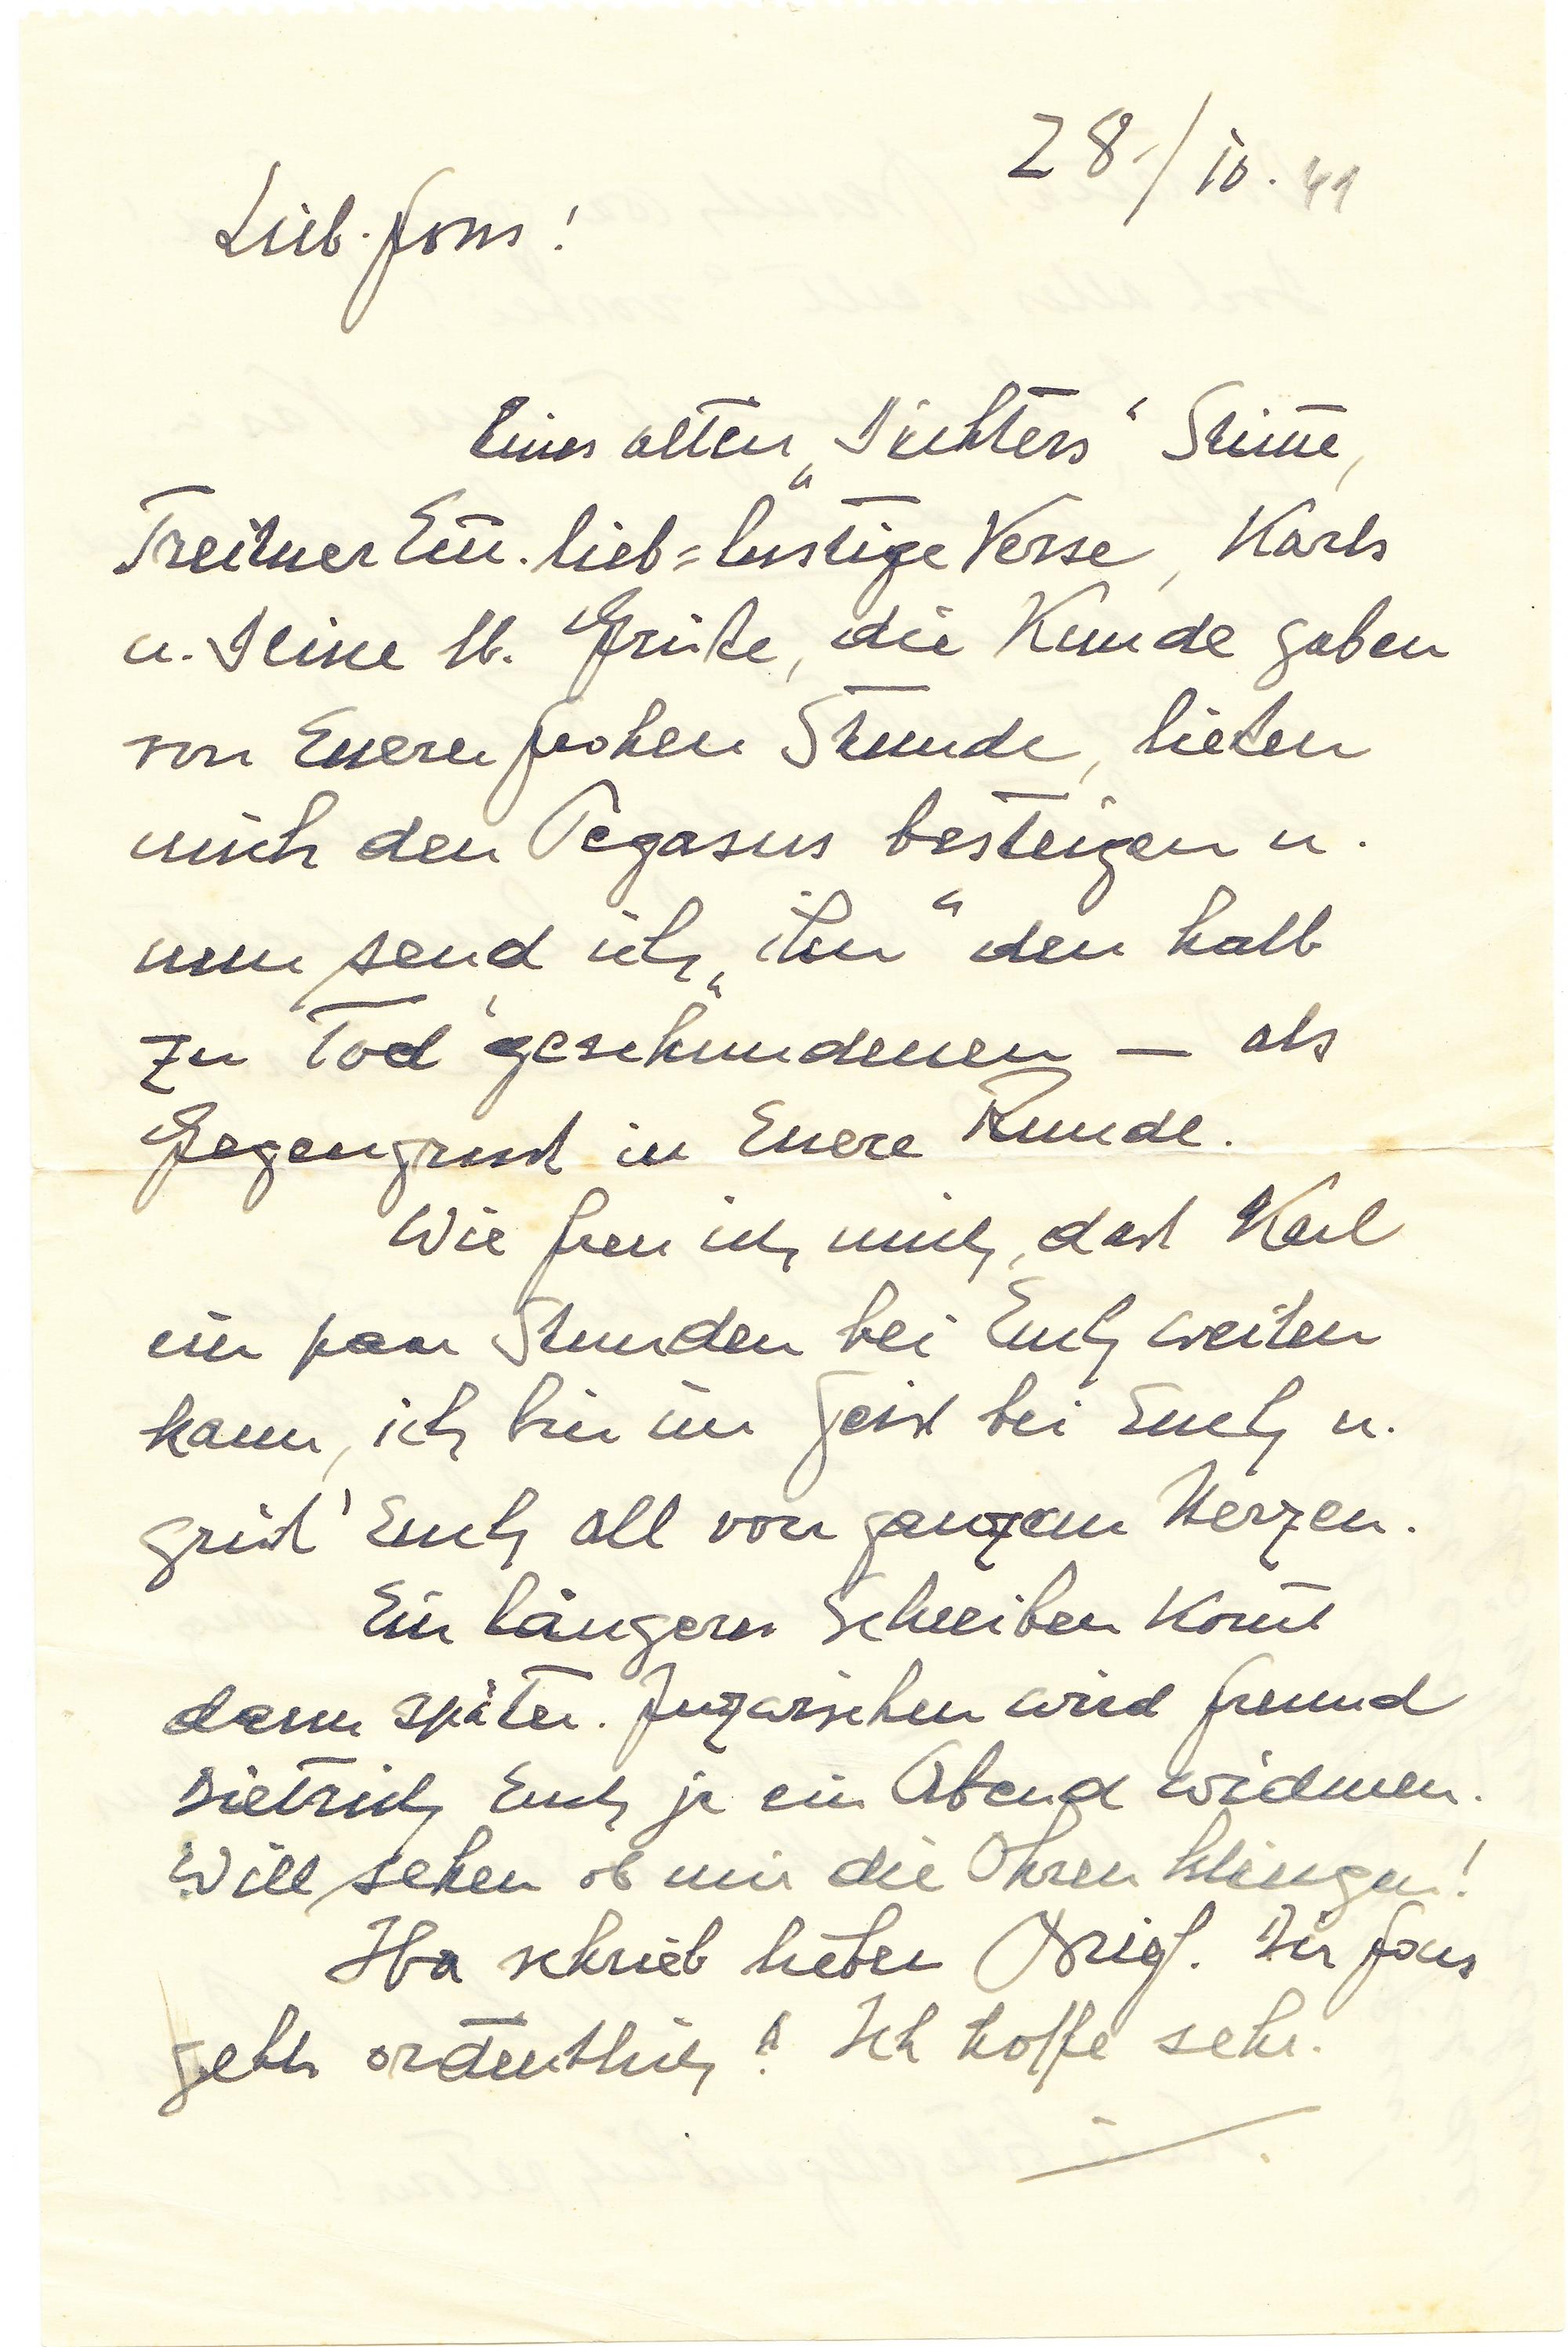 28./10. 41
Lieb. Fons!
Eines alten „Dichters“ Stim̅e,
Treitner Em̅. lieb=lustige Verse, Karls
u. Deine lb. Grüße, die Kunde gaben
von Euerer frohen Stunde, ließen
mich den Pegasus besteigen u.
nun send ich „ihn“ den halb
zu Tod geschundenen — als
Gegengruß in Euere Runde.
Wie freu ich mich, daß Karl
ein paar Stunden bei Euch weilen
kann, ich bin im Geist bei Euch u.
grüß' Euch all von ganzem Herzen.
Ein längeres Schreiben kom̅t
dann später. Inzwischen wird Freund
Dietrich Euch ja ein Abend widmen.
Will sehen ob mir die Ohren klingen!
Ilva schrieb lieben Brief. Dir Fons
gehts ordentlich? Ich hoffe sehr.